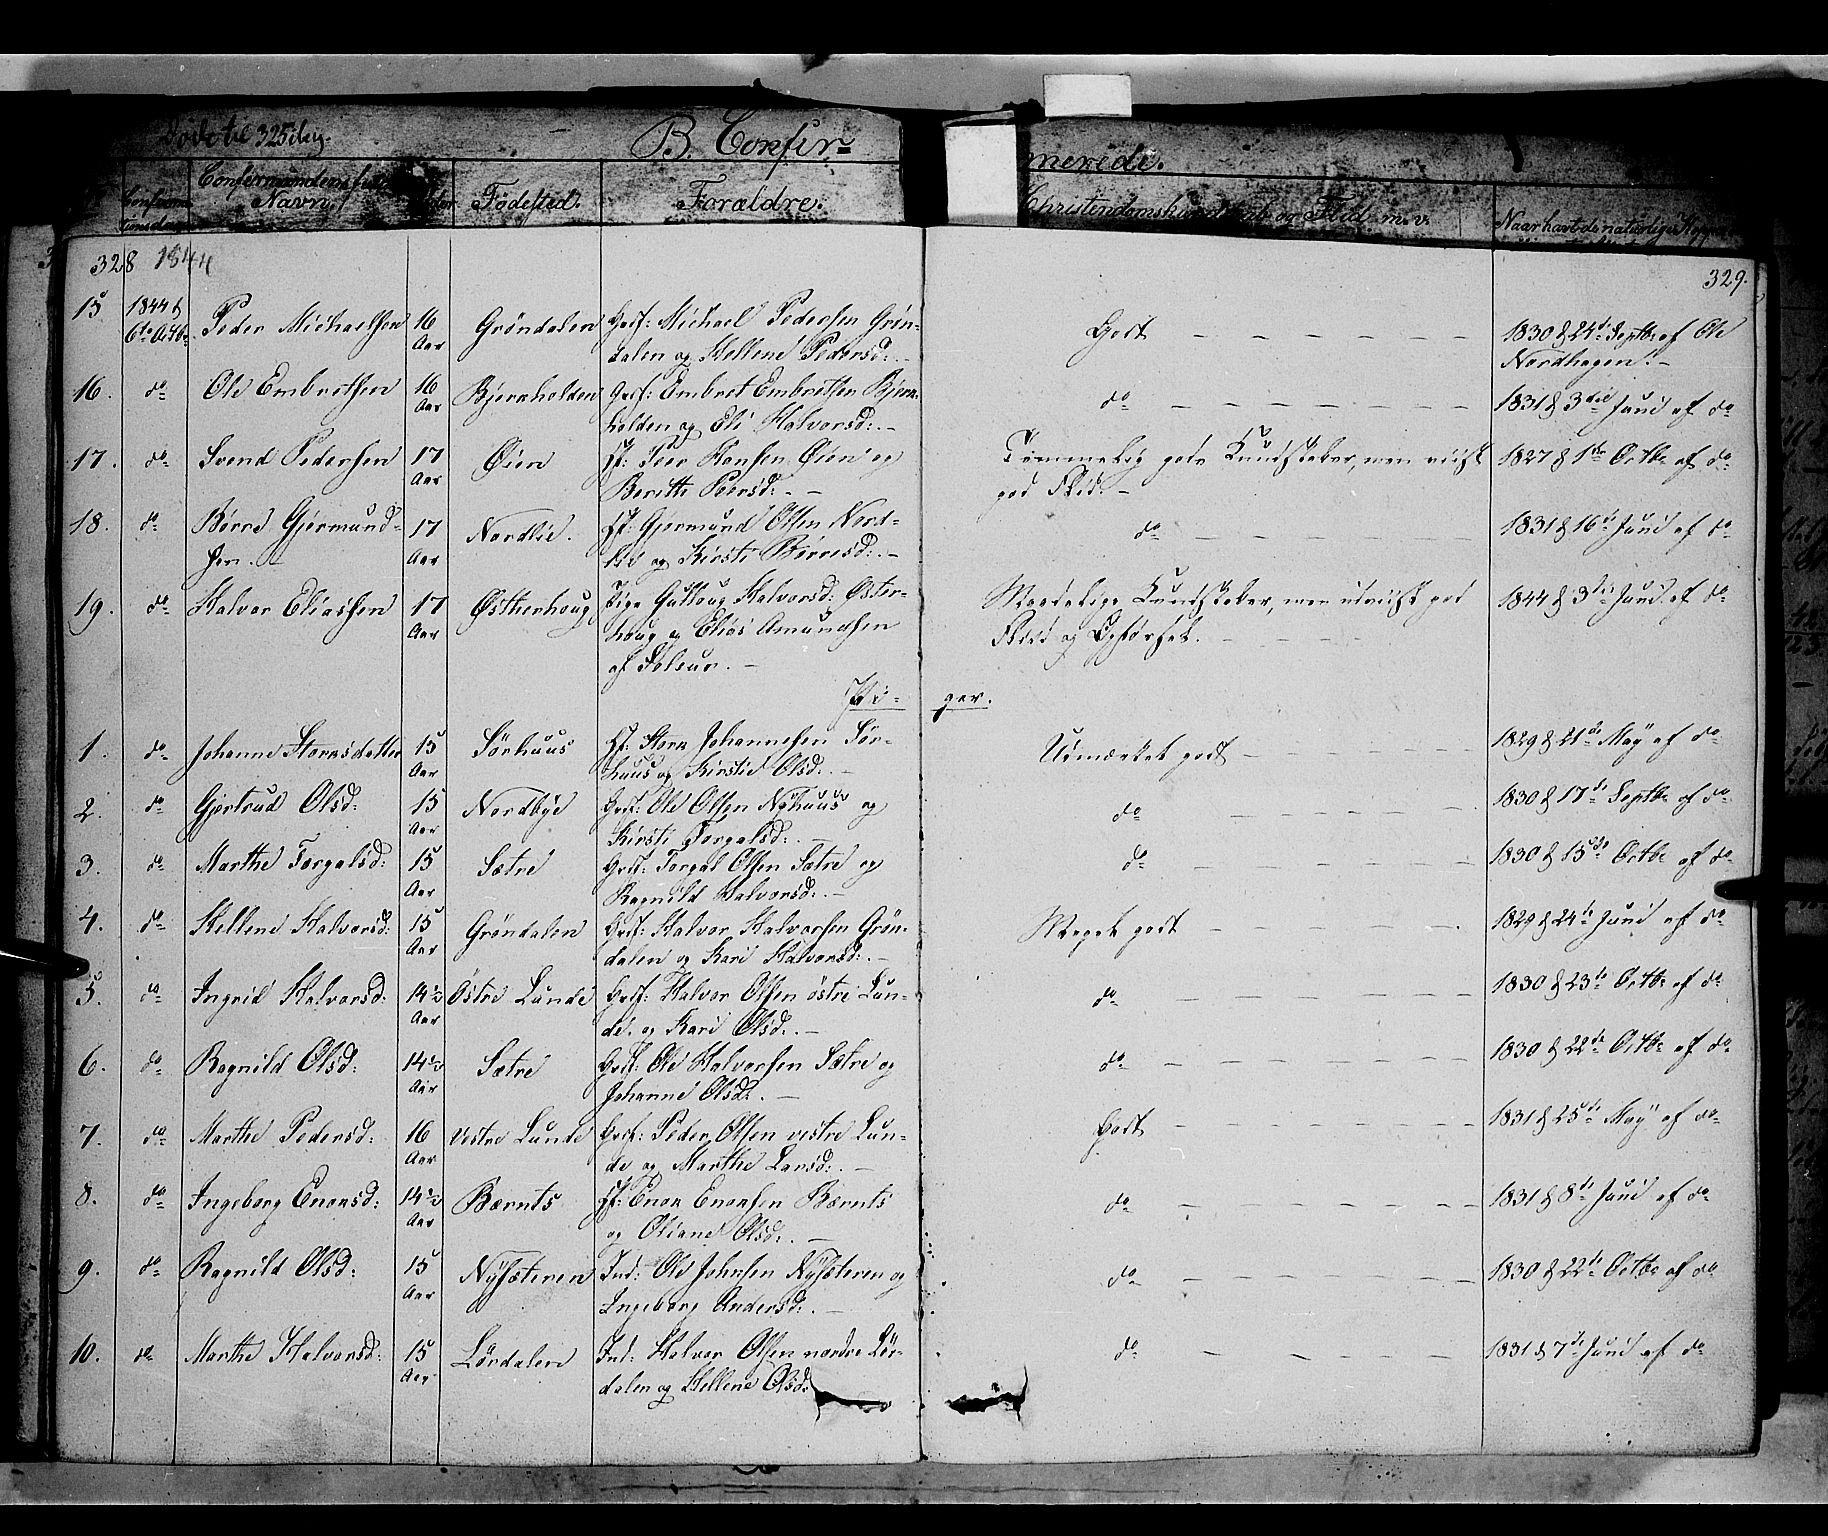 B. Confir-
merede.
Navn.
Fødested.
Forældre.
328 1844
329.
15 1844 d 6te Octbr. Peder Michaelsen 16 Aar Grøndalen Grdf: Michael Pedersen Grøn-
dalen og Hellene Pedersd: Godt 1830 d 24de Septbr af Ole
Nordhagen.
16. do Ole Embretsen 16 Aar Bjernholden Grdf: Embret Embretsen Bjern-
holden og Eli Halvorsd: do 1831 d 3die Juni af do
17. do Svend Pedersen 17 Aar Øien Peer Hansen Øien og
Berithe Peersd: Temmelig gode Kundskaber, men
god Flid. 1827 d 1ste Octbr af do
18. do Børre Gjermund-
sen. 17 Aar Nordlie. Gjermund Olsen Nord-
lie og Kirsti Børresd: do 1831 d 16de Juni af do
19. do Halvor Eliassen 17 Aar Østherhoug Pige Guthoug Halvorsd: Øster-
houg og Elias Amundsen
af Soløer. Maadelige Kundskaber, men udviist god
Flid og Opførsel. 1844 d 3die Juni af do
Pi- ger.
1. do Johanne Storasdatter 15 Aar Sørhuus Johannesen Sør-
huus og Kirstie Olsd: Udmærket godt 1829 d 21de May af do
2. do Gjertrud Olsd: 15 Aar Nordbye Grdf: Ole Olsen Nyhuus og
Kirsti Torgalsd: do 1830 d 17de Septbr af do
3. do Marthe Torgalsd: 15 Aar Sætre Grdf: Torgal Olsen Sætre og
Ragnild Halvorsd: do 1830 d 15de Octbr af do
4. do Hellene Halvorsd: 15 Aar Grøndalen Grdf: Halvor Halvorsen Grøn-
dalen og Kari Halvorsd: Meget godt 1829 d 24de Juni af do
5. do Ingrid Halvorsd: 14½ Aar Østre Lunde Grdf: Halvor Olsen østre Lun-
de og Kari Olsd: do 1830 d 23de Octbr af do
6. do Ragnild Olsd: 14½ Aar Sætre Grdf: Ole Halvorsen Sætre og
Johanne Olsd: do 1830 d 22de Octbr af do
7. do Marthe Pedersd: 16 Aar Vestre Lunde Grdf: Peder Olsen vestre Lun-
de og Marthe Larsd: Godt 1831 d 25de May af do
8. do Ingeborg Enersd: 14½ Aar Bærnts Bærnts
og Oliane Olsd: do 1831 d 8de Juni af do
9. do Ragnild Olsd: 15 Aar Nysæteren Ind: Ole Johnsen Nysæteren og
Ingeborg Andersd: do 1830 d 22de Octbr af do
10. do Marthe Halvorsd: 15 Aar Lørdalen Ind: Halvor Olsen nordre Lør-
dalen og Hellene Olsd: do 1831 d 7de Juni af do